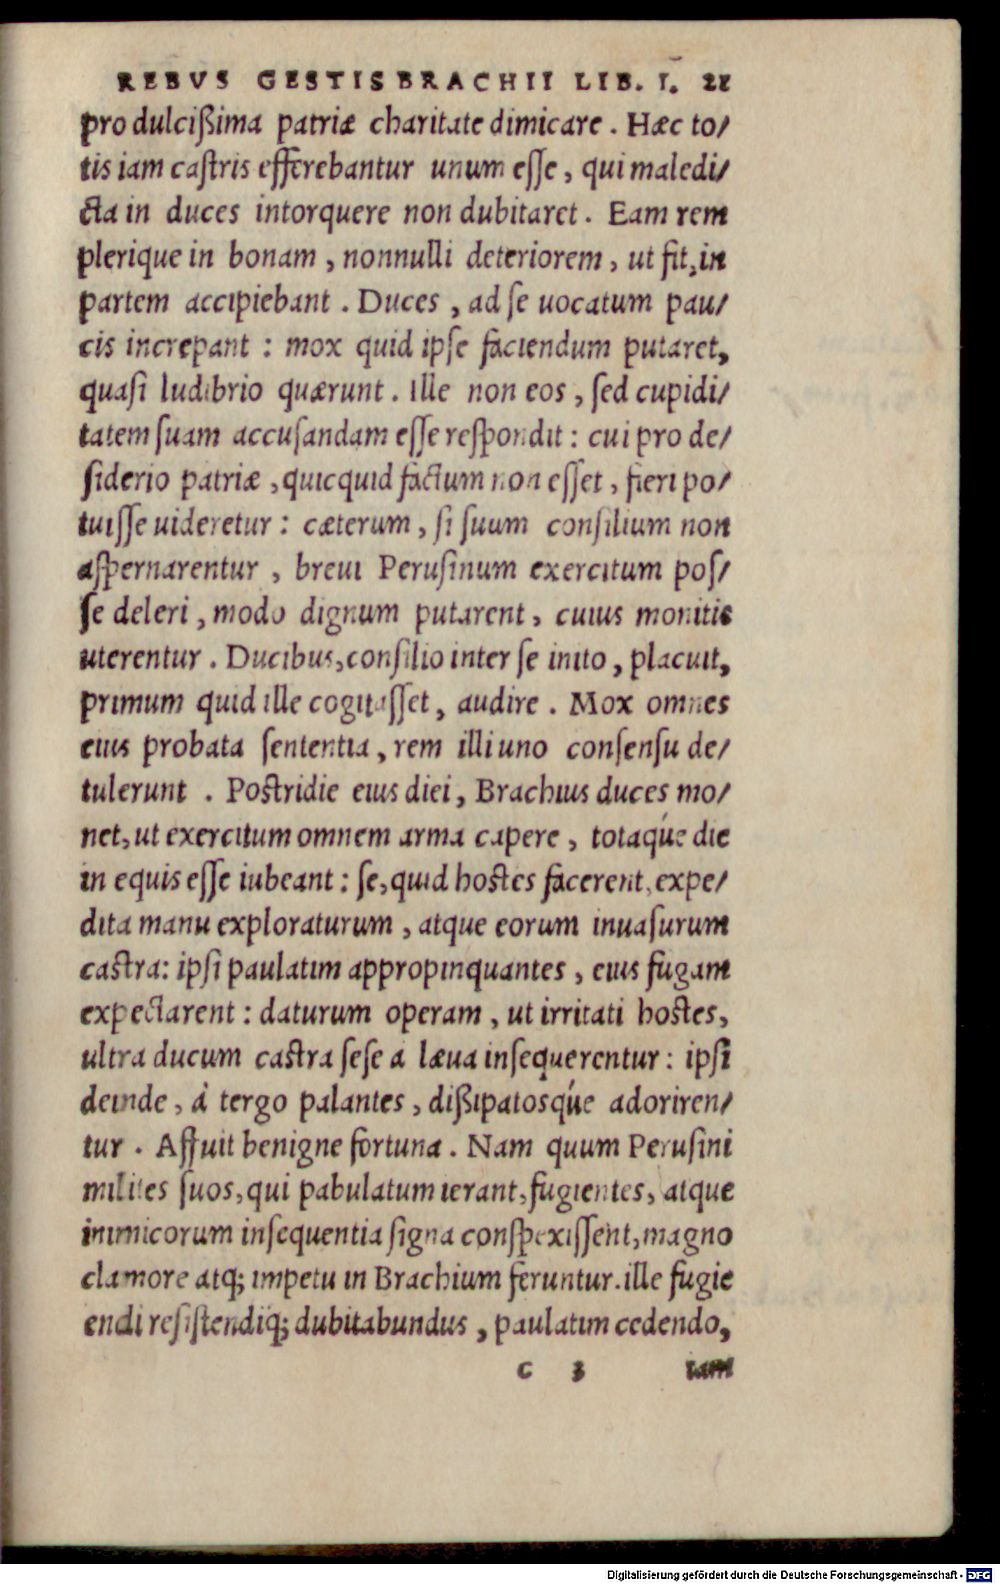 REBVS GESTIS BRACHII LIB. I. 21
pro dulcißima patriæ charitate dimicare. Hæc to/
tis iam castris efferebantur unum esse, qui maledi/
cta in duces intorquere non dubitaret. Eam rem
plerique in bonam, nonnulli deteriorem, ut fit, in
partem accipiebant. Duces, ad se uocatum pau/
cis increpant: mox quid ipse faciendum putaret,
quasi ludibrio quærunt. Ille non eos, sed cupidi/
tatem suam accusandam esse respondit: cui pro de/
siderio patriæ, quicquid factum non esset, fieri po/
tuisse uideretur: cæterum, si suum consilium non
aspernarentur, breui Perusinum exercitum pos/
se deleri, modo dignum putarent, cuius monitis
uterentur. Ducibus, consilio inter se inito, placuit,
primum quid ille cogitasset, audire. Mox omnes
eius probata sententia, rem illi uno consensu de/
tulerunt. Postridie eius diei, Brachius duces mo/
net, ut exercitum omnem arma capere, totaq́ue die
in equis esse iubeant: se, quid hostes facerent, expe/
dita manu exploraturum, atque eorum inuasurum
castra: ipsi paulatim appropinquantes, eius fugam
expectarent: daturum operam, ut irritati hostes,
ultra ducum castra sese a læua insequerentur: ipsi
deinde, à tergo palantes, dißipatosq́ue adoriren/
tur. Affuit benigne fortuna. Nam quum Perusini
milites suos, qui pabulatum ierant, fugientes, atque
inimicorum insequentia signa conspexissent, magno
clamore atq; impetu in Brachium feruntur. ille fugie
endi resistendiq́; dubitabundus, paulatim cedendo,
C 3 iam
Digitalisierung gefördert durch die Deutsche Forschungsgemeinschaft - DFG